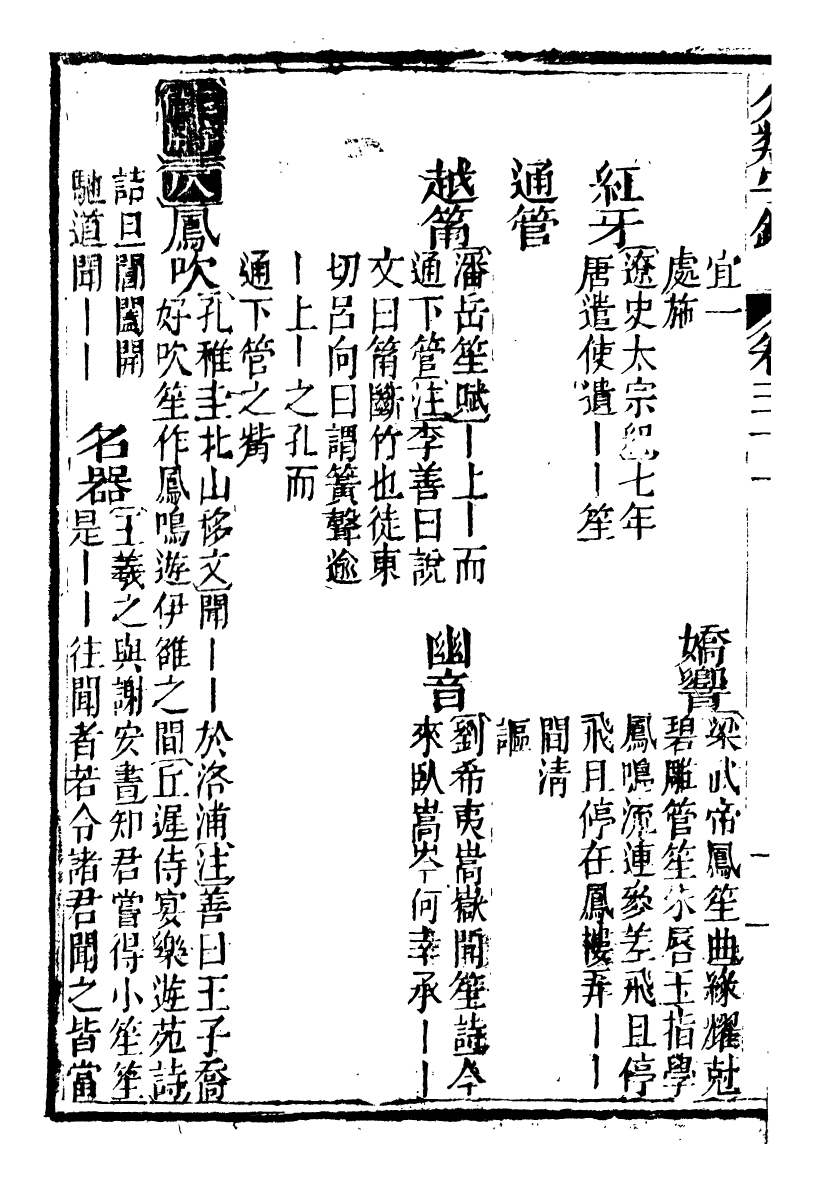 分類字錦
卷三十一
宜一
處施
紅牙
遼史太宗紀七年
唐遣使遺｜｜笙
嬌響
梁武帝鳳笙曲綠耀尅
碧雕管笙朱唇玉指學
鳳鳴流連參差飛且停
飛且停在鳳樓弄｜｜
間清
謳
通管
越筩
潘岳笙賦｜上｜而
通下管注李善曰說
文曰筩斷竹也徒東
切呂向曰謂簧聲逾
｜上｜之孔而
通下管之觜
幽音
劉希夷嵩嶽聞笙詩今
來臥嵩岑何幸承｜｜
鳳吹
孔稚圭北山移文聞｜｜於洛浦注善曰王子喬
好吹笙作鳳鳴遊伊雒之間丘遲侍宴樂遊苑詩
詰旦閶闔開
馳道聞｜｜
名器
王羲之與謝安書知君嘗得小笙笙
是｜｜往聞者若令諸君聞之皆當